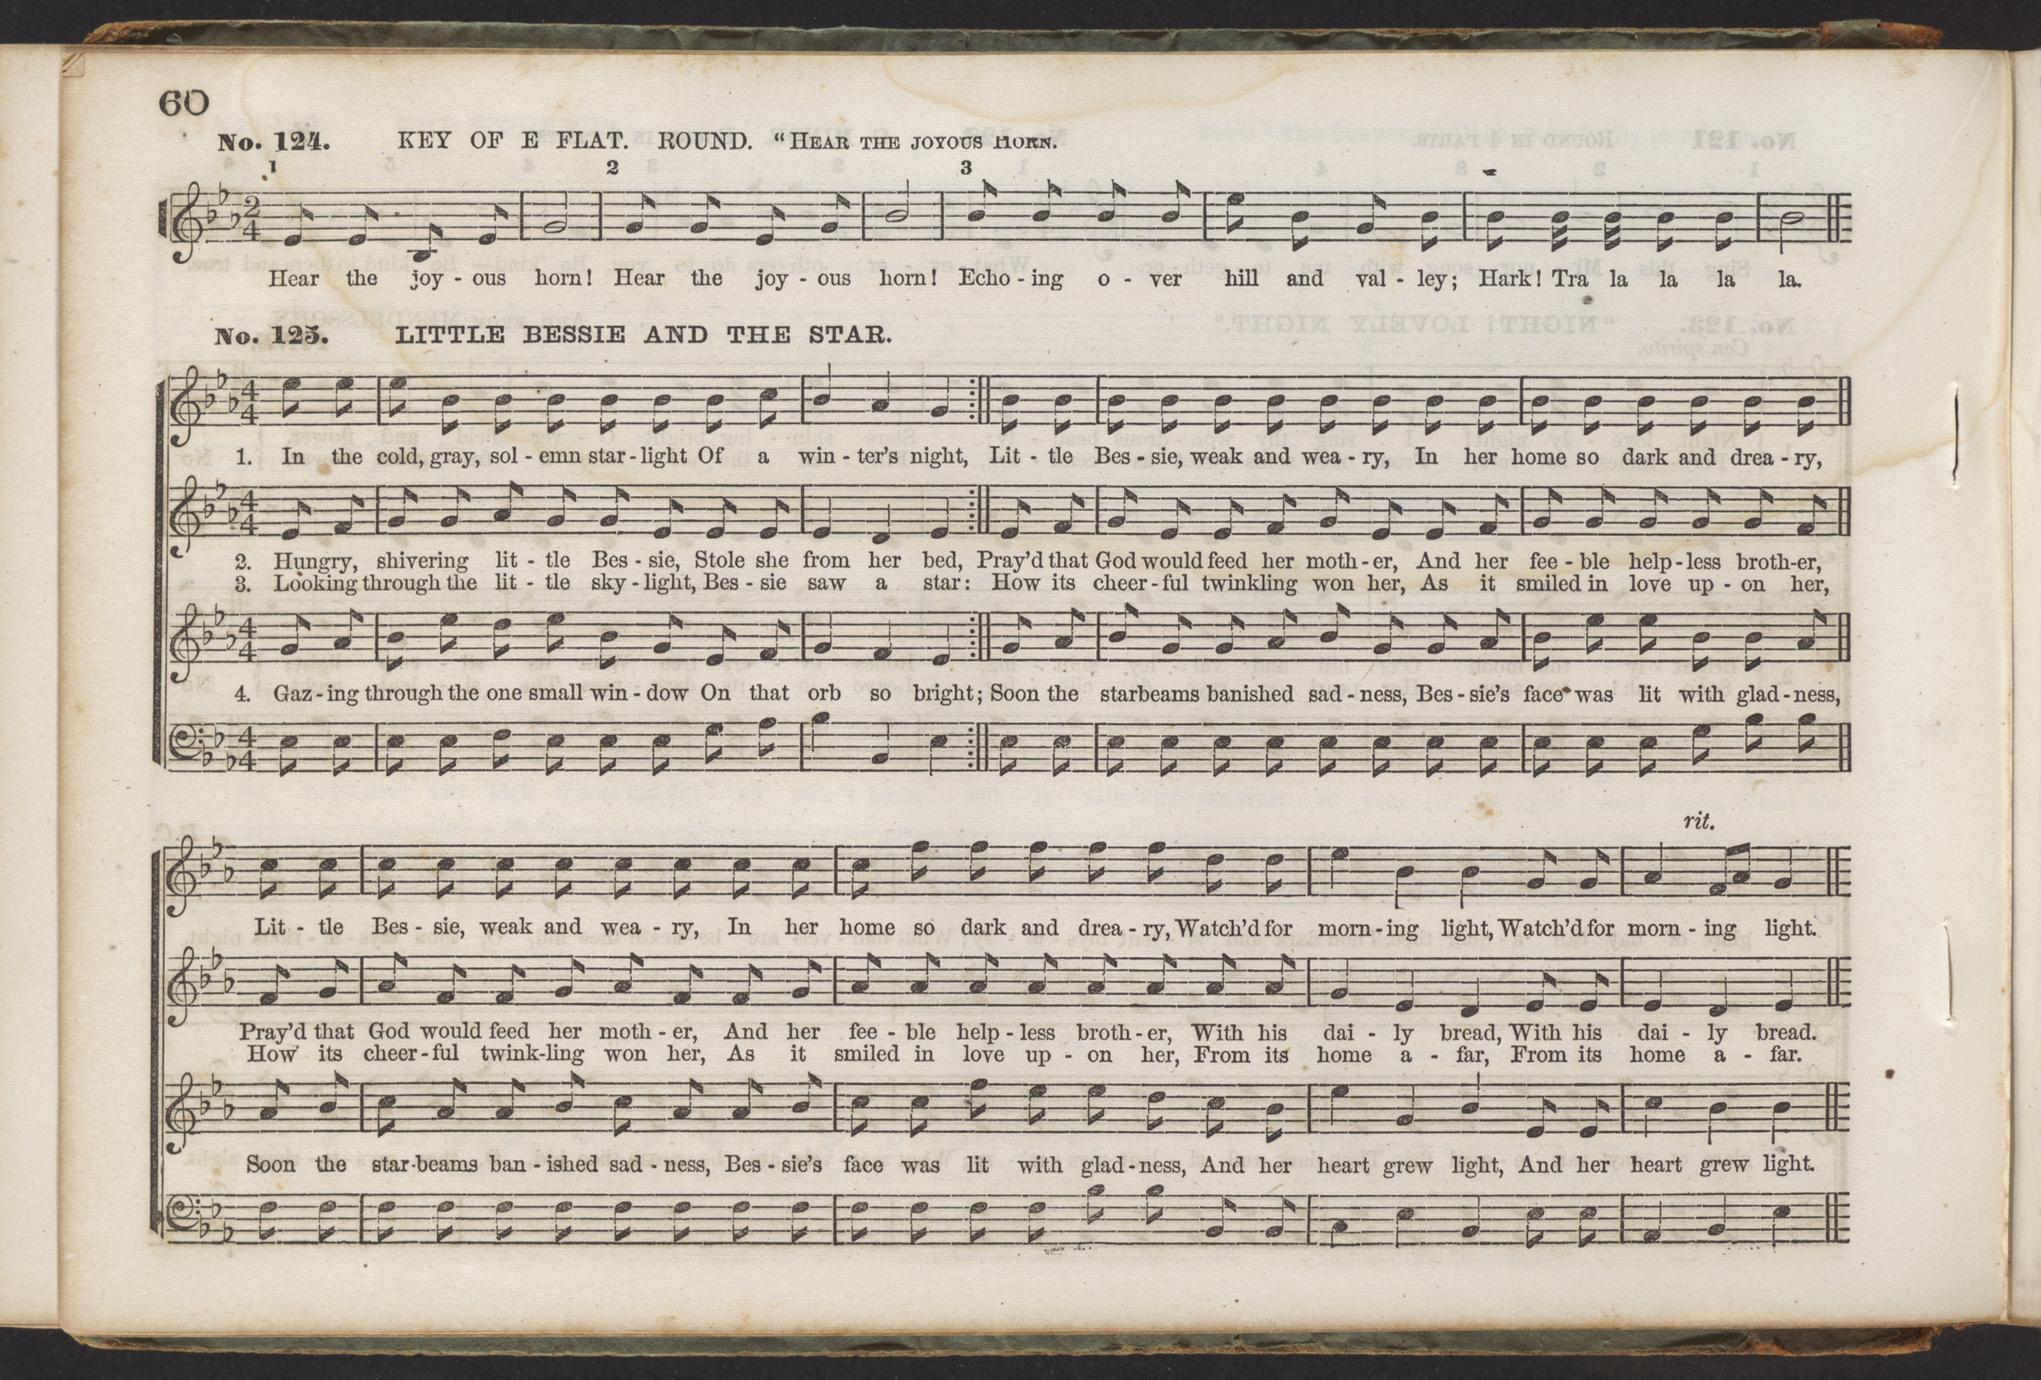 60
No. 124. KEY OF E FLAT. ROUND. “HEAR THE JOYOUS HORN.
1 2 3
2 4
Hear the joy - ous horn! Hear the joy - ous horn! Echo - ing o - ver hill and val - ley; Hark! Tra la la la la.
No. 125. LITTLE BESSIE AND THE STAR.
4 4
1. In the cold, gray, sol - emn star - light Of a win - ter's night, Lit - tle Bes - sie, weak and wea - ry, In her home so dark and drea - ry,
4 4
2. Hungry, shivering lit - tle Bes - sie, Stole she from her bed, Pray'd that God would feed her moth - er, And her fee - ble help - less broth - er,
3. Looking through the lit - tle sky - light, Bes - sie saw a star: How its cheer - ful twinkling won her, As it smiled in love up - on her,
4 4
4. Gaz - ing through the one small win - dow On that orb so bright; Soon the starbeams banished sad - ness, Bes - sie's face was lit with glad - ness,
4 4
rit.
Lit - tle Bes - sie, weak and wea - ry, In her home so dark and drea - ry, Watch'd for morn - ing light, Watch'd for morn - ing light.
Pray'd that God would feed her moth - er, And her fee - ble help - less broth - er, With his dai - ly bread, With his dai - ly bread.
How its cheer - ful twink - ling won her, As it smiled in love up - on her, From its home a - far, From its home a - far.
Soon the star - beams ban - ished sad - ness, Bes - sie's face was lit with glad - ness, And her heart grew light, And her heart grew light.